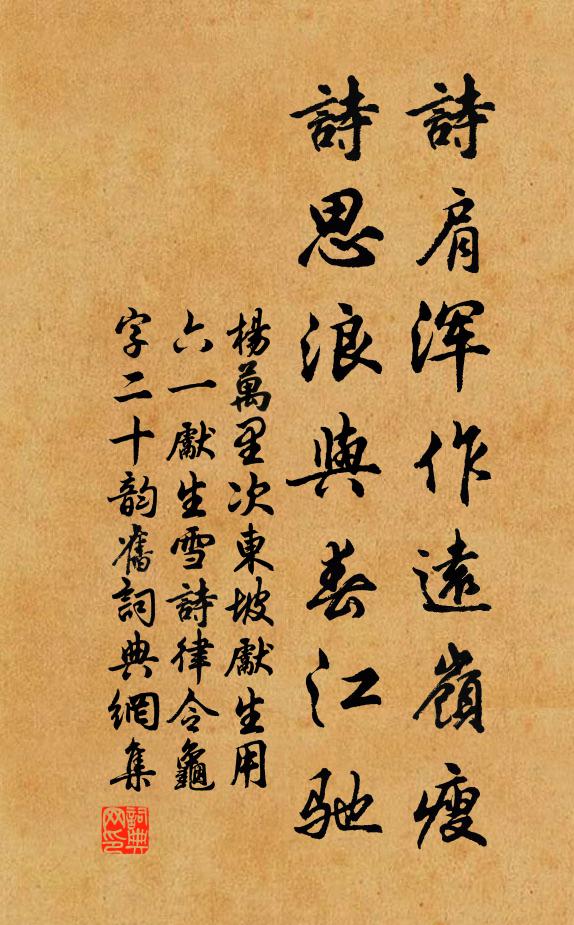 詩肩渾作遠嶺瘦
詩思浪與春江馳
楊萬里次東坡獻生用
六一獻生雪詩律令龜
字二十韵舊詞典網集
詞典
网印